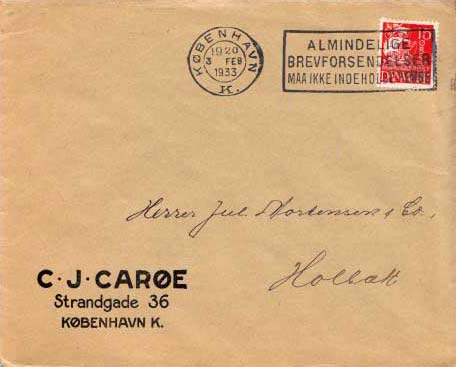 KØBENHAVN
1920
3 FEB
1933
K.
ALMINDELIGE
BREVFORSENDELSER
MAA IKKE INDEHOLDE PENGE
15
Herrer Jul. Mortensen & Co.,
Holbæk
C·J·CARØE
Strandgade 36
KØBENHAVN K.